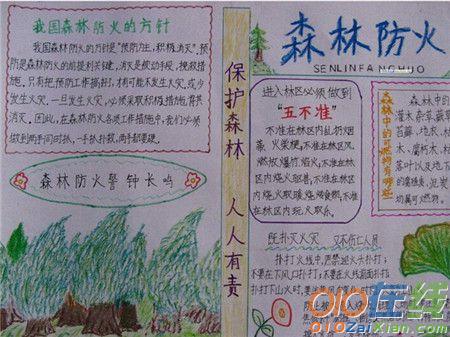 我国森林防火的方针
我国森林防火的方针是"预防为主,积极消灭",预
防是森林防火的前提和关键,消灭是被动手段、挽救措
施。只有把预防工作搞好了,才有可能不发生火灾或少
发生火灾。一旦发生火灾,必须采取积极措施,
因此,在森林防火各项工作措施中,我们必须
做到两手同时抓,一手抓
森林防火警钟长鸣
保护森林 人人有责
森林防火
SENLINFANGHUO
进入林区必须做到
"五不准"
不准在林区内乱扔烟
蒂、火柴梗,不准在林区
燃放爆竹、焰火,不准在林区
内烧火驱兽,不准在林区
内烧火取暖、烧烤食物,不准
在林区内玩火取乐。
森林中的可燃物有哪些
森林中的
灌木、杂草、
苔藓、地衣、
木、腐朽木、
落叶以及地下
切属可燃物。
既扑灭火灾 又不伤亡人员
扑打火线中,严禁迎火头扑打;
不要在下风口扑打;
扑打下山火时,要
010在线
010ZaiXian.com